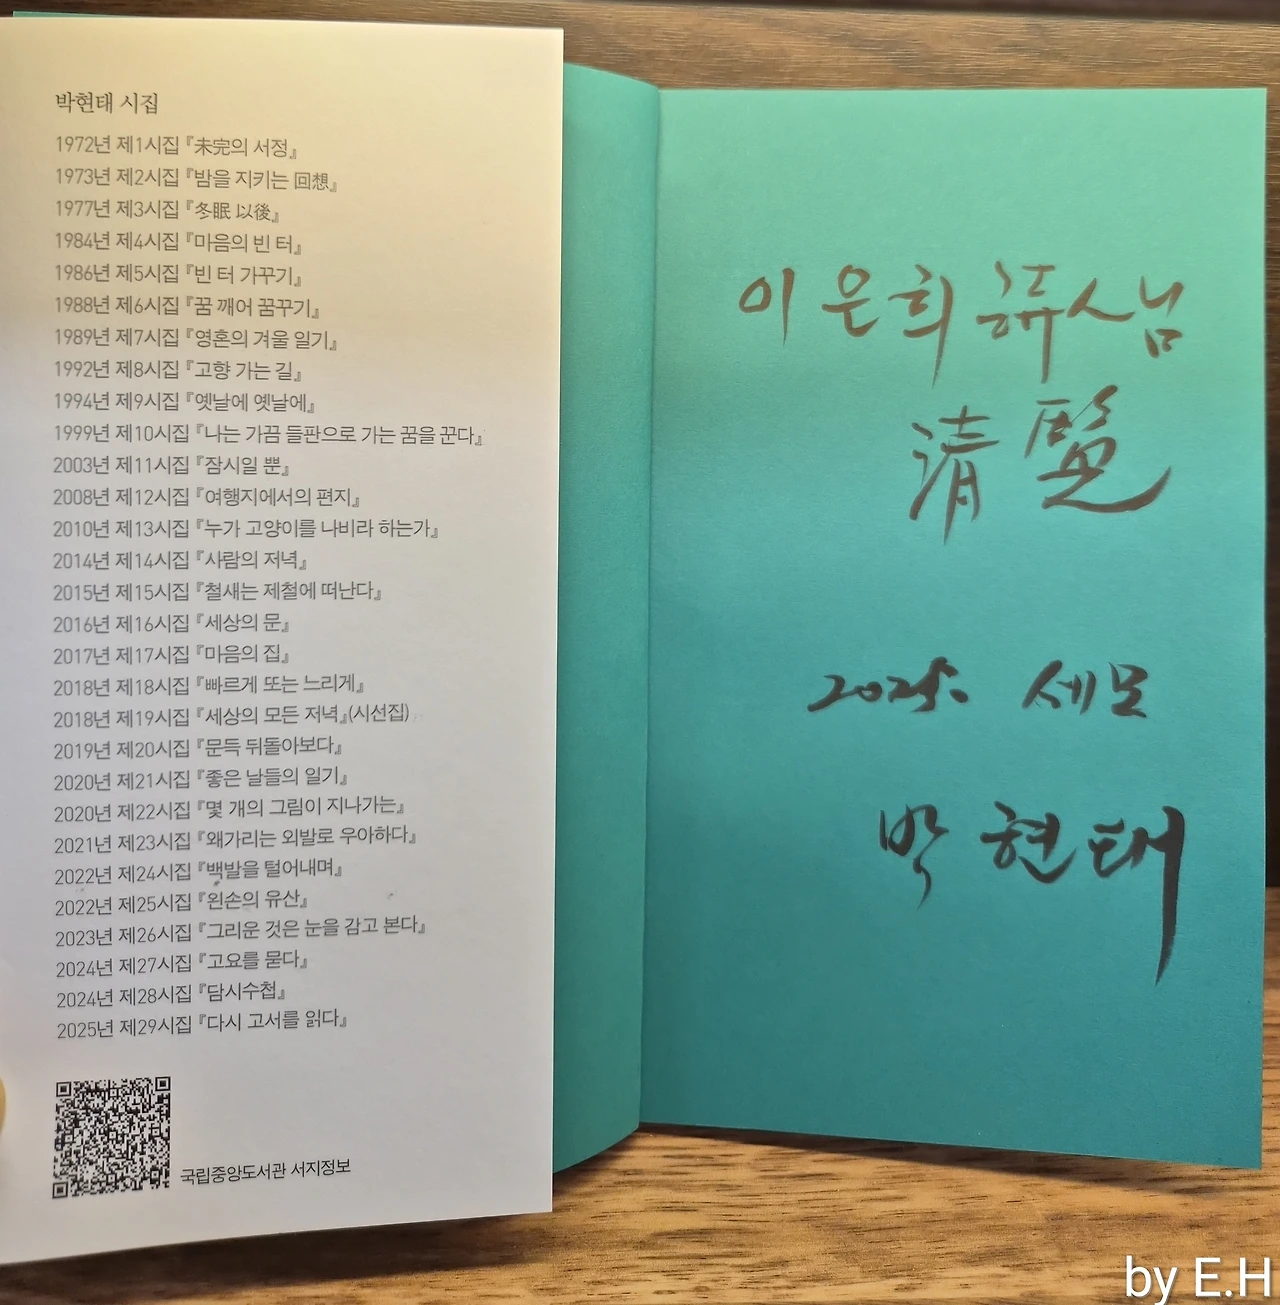 박현태 시집
1972년 제1시집 『未完의 서정』
1973년 제2시집 『밤을 지키는 回想』
1977년 제3시집 『冬眠 以後』
1984년 제4시집 『마음의 빈 터』
1986년 제5시집 『빈 터 가꾸기』
1988년 제6시집 『꿈 깨어 꿈꾸기』
1989년 제7시집 『영혼의 겨울 일기』
1992년 제8시집 『고향 가는 길』
1994년 제9시집 『옛날에 옛날에』
1999년 제10시집 『나는 가끔 들판으로 가는 꿈을 꾼다』
2003년 제11시집 『잠시일 뿐』
2008년 제12시집 『여행지에서의 편지』
2010년 제13시집 『누가 고양이를 나비라 하는가』
2014년 제14시집 『사람의 저녁』
2015년 제15시집 『철새는 제철에 떠난다』
2016년 제16시집 『세상의 문』
2017년 제17시집 『마음의 집』
2018년 제18시집 『빠르게 또는 느리게』
2018년 제19시집 『세상의 모든 저녁』(시선집)
2019년 제20시집 『문득 뒤돌아보다』
2020년 제21시집 『좋은 날들의 일기』
2020년 제22시집 『몇 개의 그림이 지나가는』
2021년 제23시집 『왜가리는 외발로 우아하다』
2022년 제24시집 『백발을 털어내며』
2022년 제25시집 『왼손의 유산』
2023년 제26시집 『그리운 것은 눈을 감고 본다』
2024년 제27시집 『고요를 묻다』
2024년 제28시집 『담시수첩』
2025년 제29시집 『다시 고서를 읽다』
국립중앙도서관 서지정보
이 은 희 님
清 覽
2025. 세모
박 현 태
by E.H